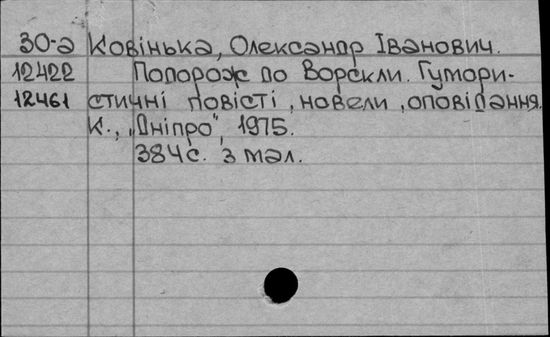 30-а Ковінька, Олександр Іванович.
12422 Подорож до Ворскли. Гумори-
12461 стичні повісті, новели, оповідання.
К., „Дніпро", 1975.
384с. з мал.